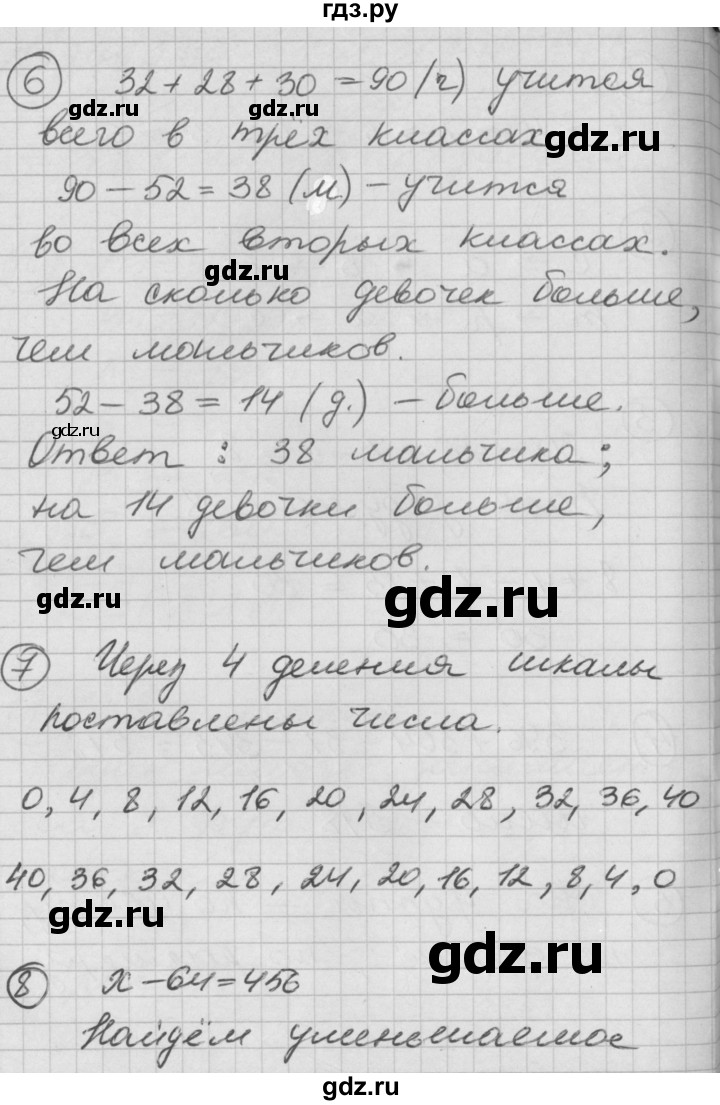 гдз.ру
6 32 + 28 + 30 = 90 (ч) учится
gdz.ru gdz.ru
всего в трёх классах gdz.ru
90 - 52 = 38 (м) - учится
во всех вторых классах.
gdz.ru
На сколько девочек больше,
чем мальчиков.
52 - 38 = 14 (д.) - больше.
gdz.ru
Ответ : 38 мальчика ;
на 14 девочки больше,
чем мальчиков.
gdz.ru gdz.ru
7 Через 4 деления шкалы
поставлены числа.
0, 4, 8, 12, 16, 20, 24, 28, 32, 36, 40
40, 36, 32, 28, 24, 20, 16, 12, 8, 4, 0
gdz.ru gdz.ru
8 х - 64 = 456
Найдём уменьшаемое
gdz.ru